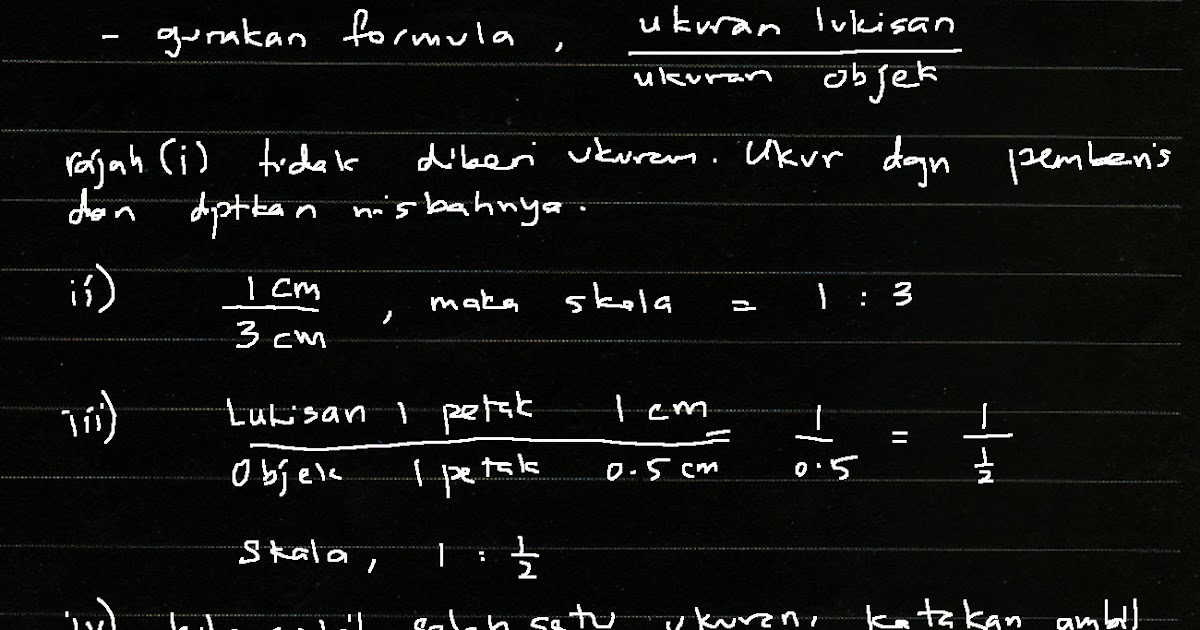 - gunakan formula, ukuran lukisan / ukuran objek
rajah (i) tidak diberi ukuran. Ukur dgn pembaris
dan dptkan nisbahnya.
ii) 1 cm / 3 cm, maka skala = 1 : 3
iii) Lukisan 1 petak 1 cm / Objek 1 petak 0.5 cm = 1 / 0.5 = 1 / 1/2
Skala, 1 : 1/2
iv) salah satu ukuran, katakan ambil